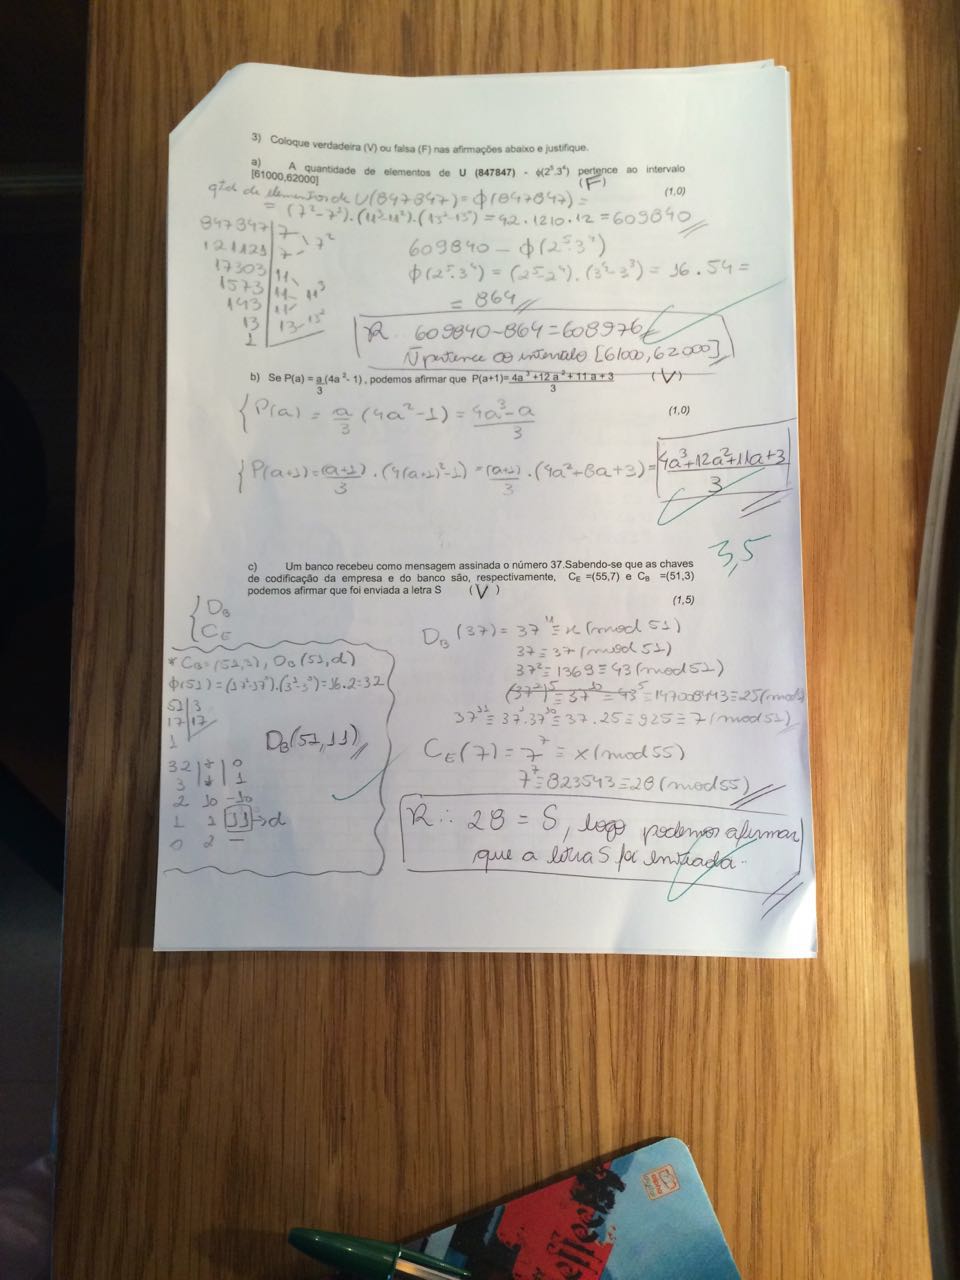 3) Coloque verdadeira (V) ou falsa (F) nas afirmações abaixo e justifique.
a) A quantidade de elementos de U (847847) - ϕ(2⁵.3⁴) pertence ao intervalo
[61000,62000] (F) (1,0)
qtd de elementos de U(847847) = ϕ(847847) =
= (7²-7¹).(11³-11²).(13¹-13⁰) = 42.1210.12 = 609840
847847 | 7
121121 | 7 7²
17303 | 11
1573 | 11 11³
143 | 11
13 | 13
1
609840 - ϕ(2⁵.3⁴)
ϕ(2⁵.3⁴) = (2⁵-2⁴).(3⁴-3³) = 16.54 =
= 864
R. 609840-864=608976
Ñ pertence ao intervalo [61000,62000]
b) Se P(a) = a/3 (4a²- 1), podemos afirmar que P(a+1)= 4a³+12a²+11a+3 / 3 (V)
(1,0)
P(a) = a/3 (4a²-1) = 4a³-a / 3
P(a+1)=(a+1)/3 . (4(a+1)²-1) = (a+1)/3 . (4a²+8a+3) = 4a³+12a²+11a+3 / 3
3,5
c) Um banco recebeu como mensagem assinada o número 37.Sabendo-se que as chaves
de codificação da empresa e do banco são, respectivamente, C_E =(55,7) e C_B =(51,3)
podemos afirmar que foi enviada a letra S (V)
(1,5)
D_B
C_E
* C_B=(51,3), D_B(51,d)
ϕ(51)=(17¹-17⁰).(3¹-3⁰)=16.2=32
51 | 3
17 | 17
1
D_B(51,11)
32 | * | 0
3 | * | 1
2 10 -10
1 1 11 → d
0 2 —
D_B(37) = 37¹¹ ≡ x(mod 51)
37 ≡ 37 (mod 51)
37² ≡ 1369 ≡ 43 (mod 51)
(37²)⁵ ≡ 37¹⁰ ≡ 43⁵ ≡ 147008443 ≡ 25 (mod
37¹¹ ≡ 37¹.37¹⁰ ≡ 37.25 ≡ 925 ≡ 7 (mod 51)
C_E(7) = 7⁷ ≡ x (mod 55)
7⁷ ≡ 823543 ≡ 28 (mod 55)
R ∴ 28 = S, logo podemos afirmar
que a letra S foi enviada.